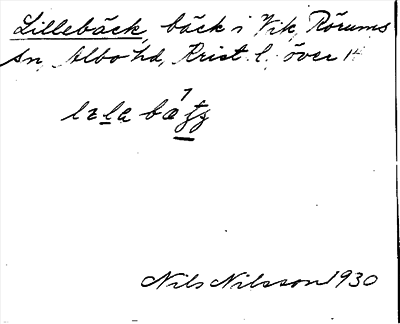 Lillebäck, bäck i Vik, Rörums
sn, Albo hd, Krist. l., över 14
Nils Nilsson 1930